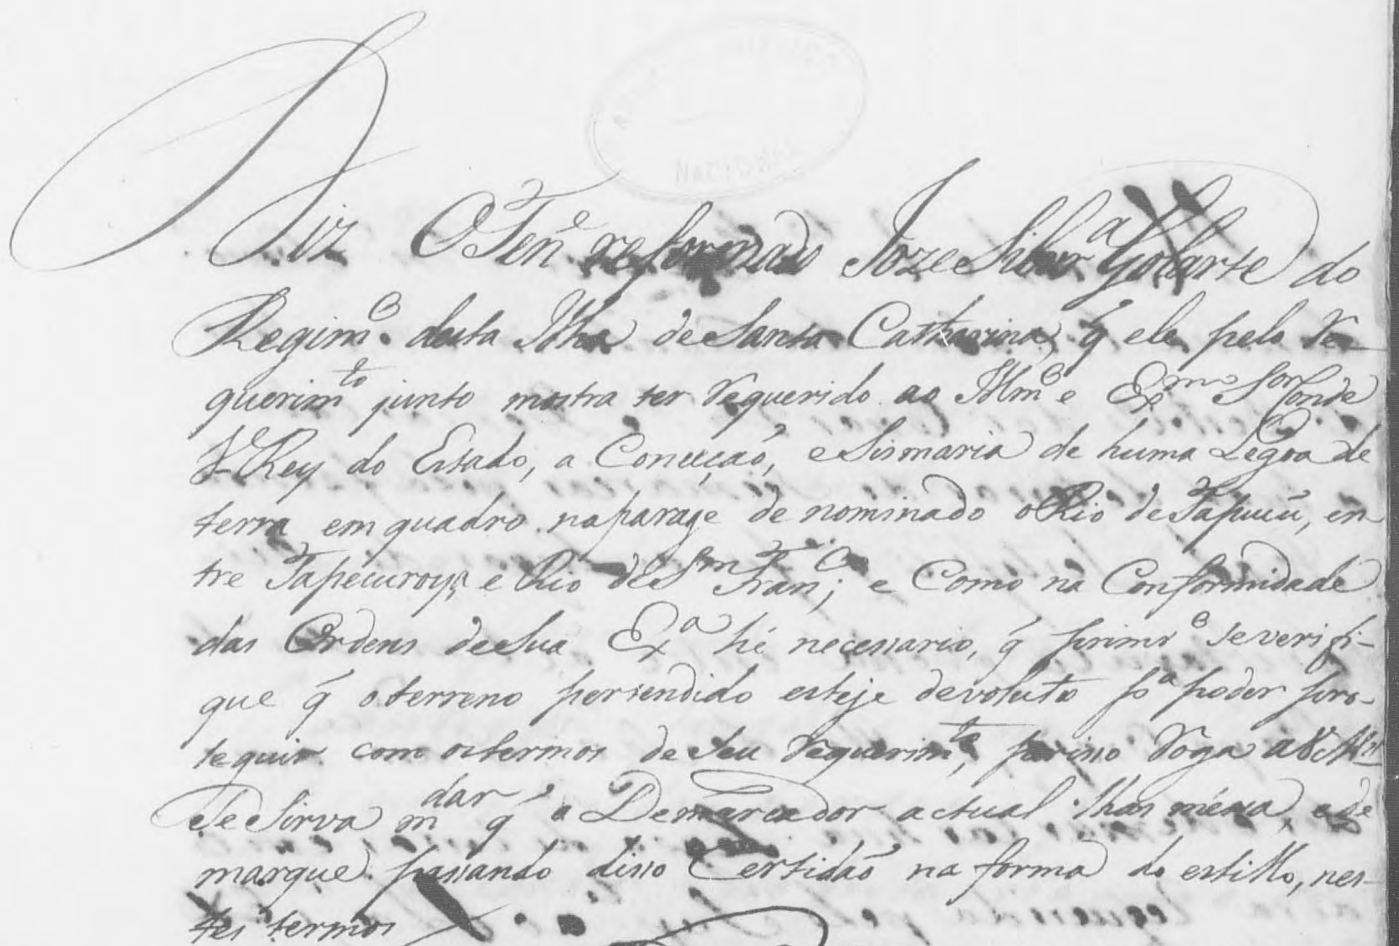 Diz O Ten.e reformado Joze Silvr.a Golarte do
Regim.o desta Ilha de Santa Catharina, q̃ ele pelo re-
querim.to junto mostra ter requerido ao Illm.o e Ex.mo S.or Conde
V. Rey do Estado, a Conceçaõ, e Sismaria de huma Legoa de
terra em quadro na paraje de nominado o Rio de Tapucú, en
tre Tapecuroy, e Rio de S.m Fran.co; e Como na Conformidade
das Ordens de Sua Ex.a hé necessario, q̃ prim.o se verifi-
que q̃ o terreno pertendido esteje devoluto p.a poder pro-
seguir com os termos de seu requerim.to, por isso roga a V.
Se Sirva m.dar q̃ o Demarcador actual lhas méssa, e de
marque passando disso Certidaõ na forma do estillo, nes-
tes termos